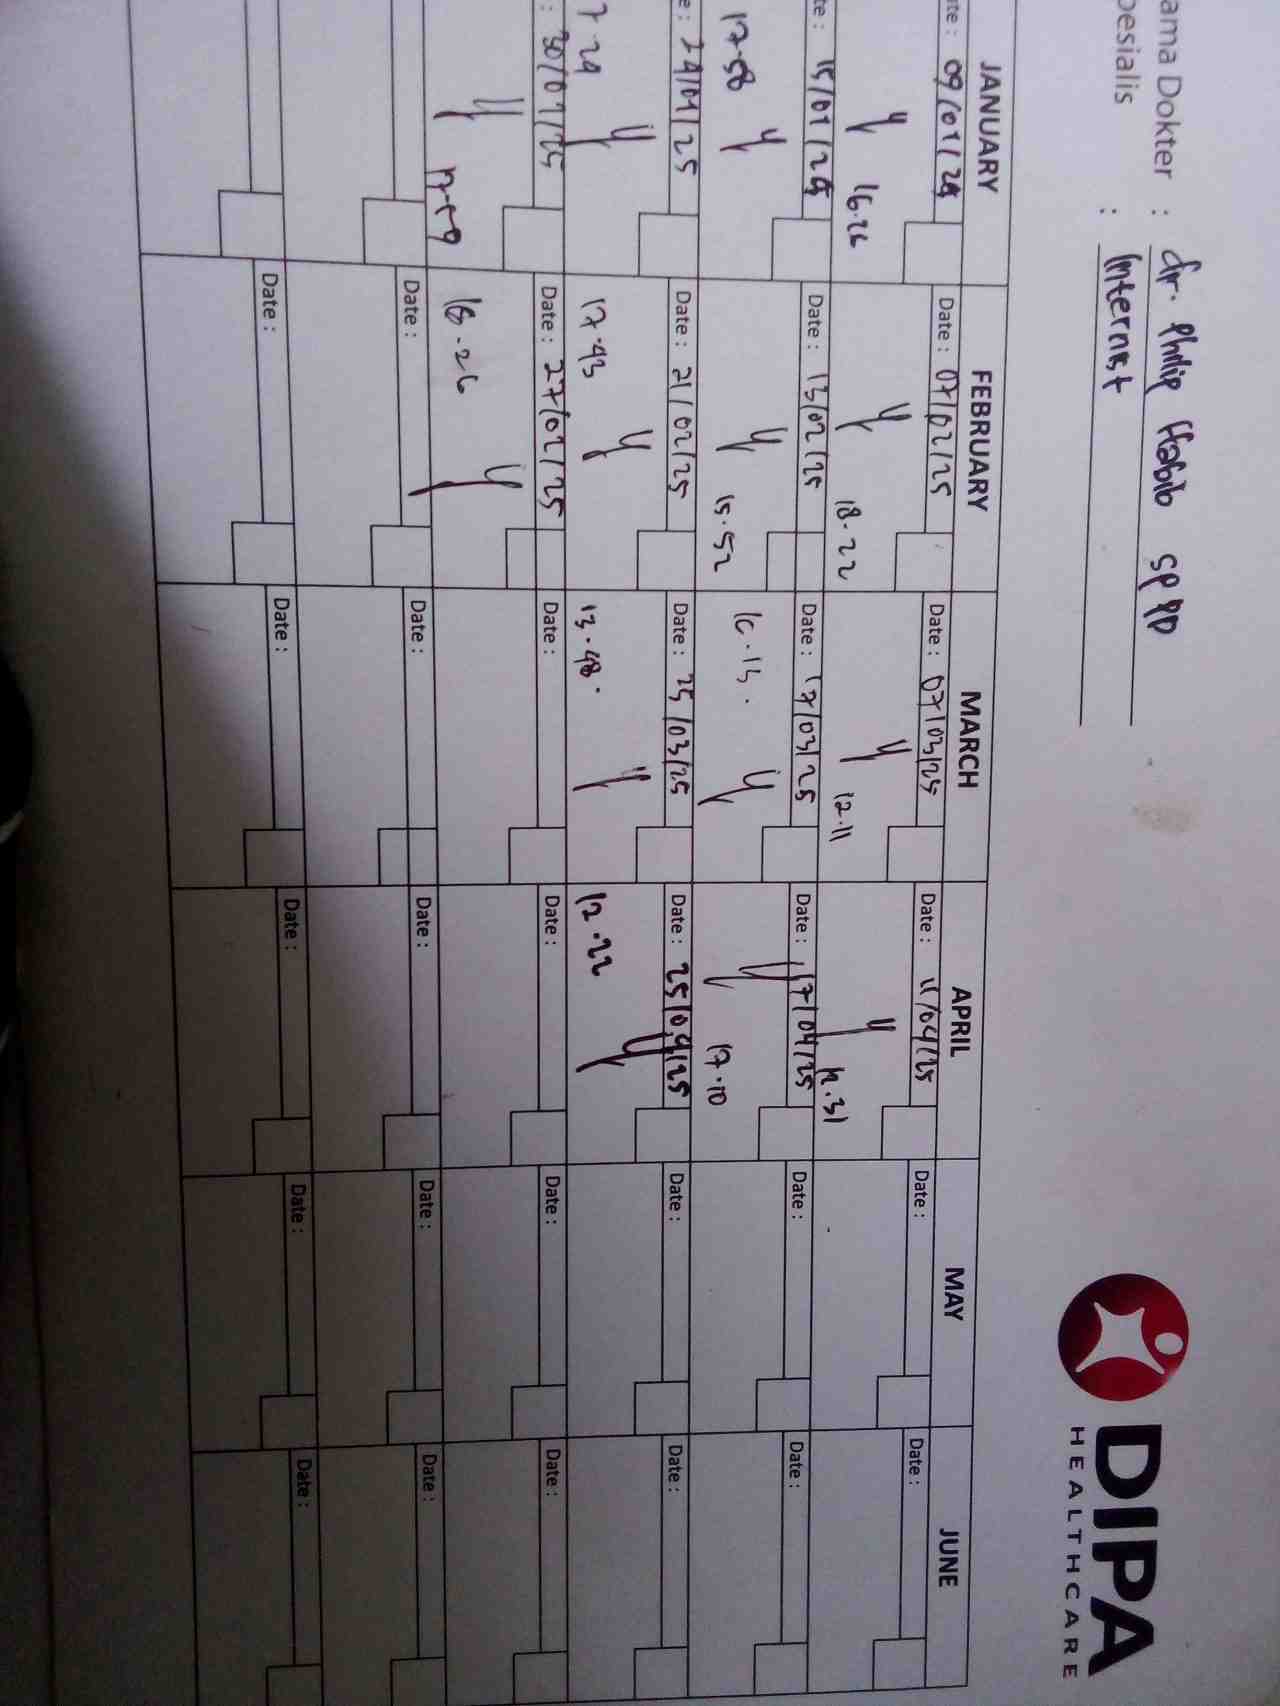 ama Dokter : dr. Philip Habib SpPD
pesialis : Internist
DIPA
HEALTHCARE
JANUARY FEBRUARY MARCH APRIL MAY JUNE
te : 09/01/24 Date : 07/02/25 Date : 07/03/25 Date : 11/04/25 Date : Date :
16.26 18.22 12.11 12.31
te : 15/01/25 Date : 13/02/25 Date : 17/03/25 Date : 17/04/25 Date : Date :
17.58 15.52 16.13. 17.10
e : 24/01/25 Date : 21/02/25 Date : 25/03/25 Date : 25/04/25 Date : Date :
7.29 17.43 13.48. 12.22
: 30/01/25 Date : 27/02/25 Date : Date : Date : Date :
16.26
Date : Date : Date : Date : Date :
Date : Date : Date : Date : Date :